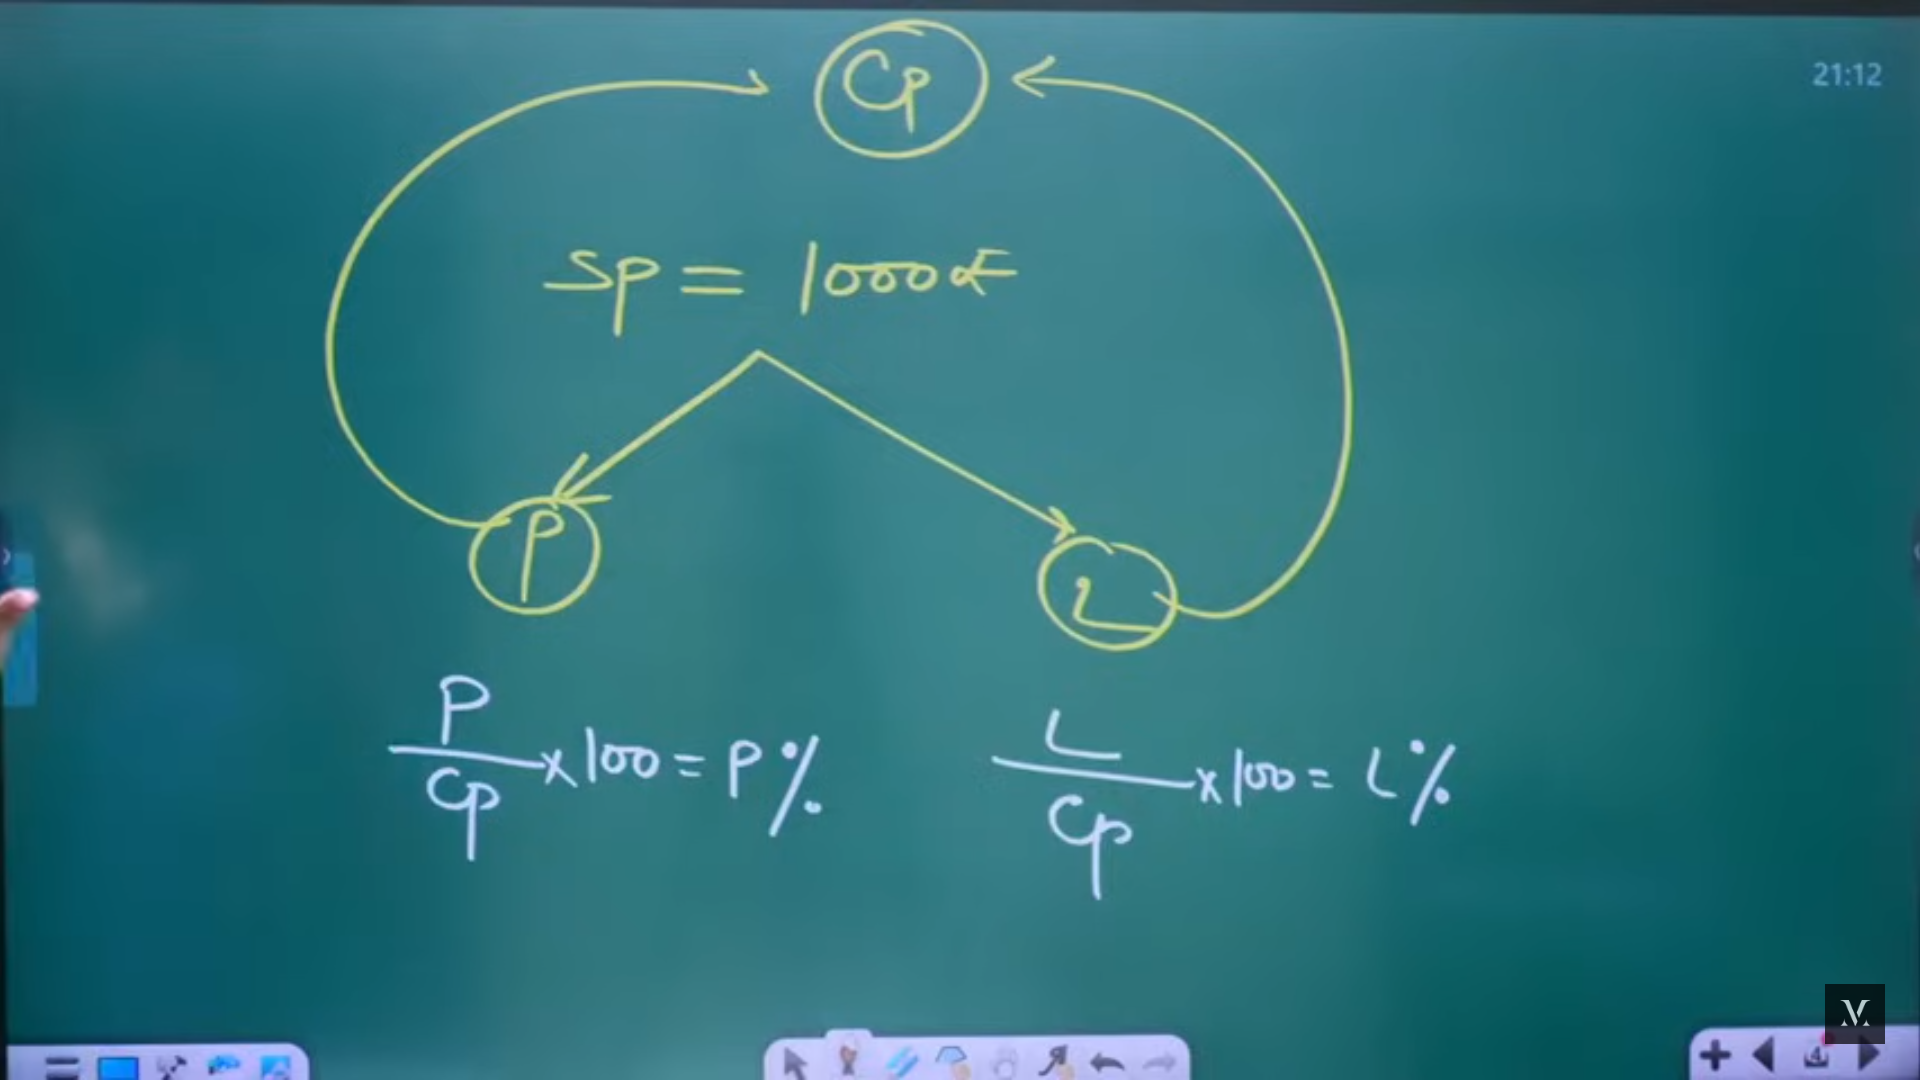 21:12
CP
SP = 1000₹
P
L
P/CP × 100 = P%
L/CP × 100 = L%
4